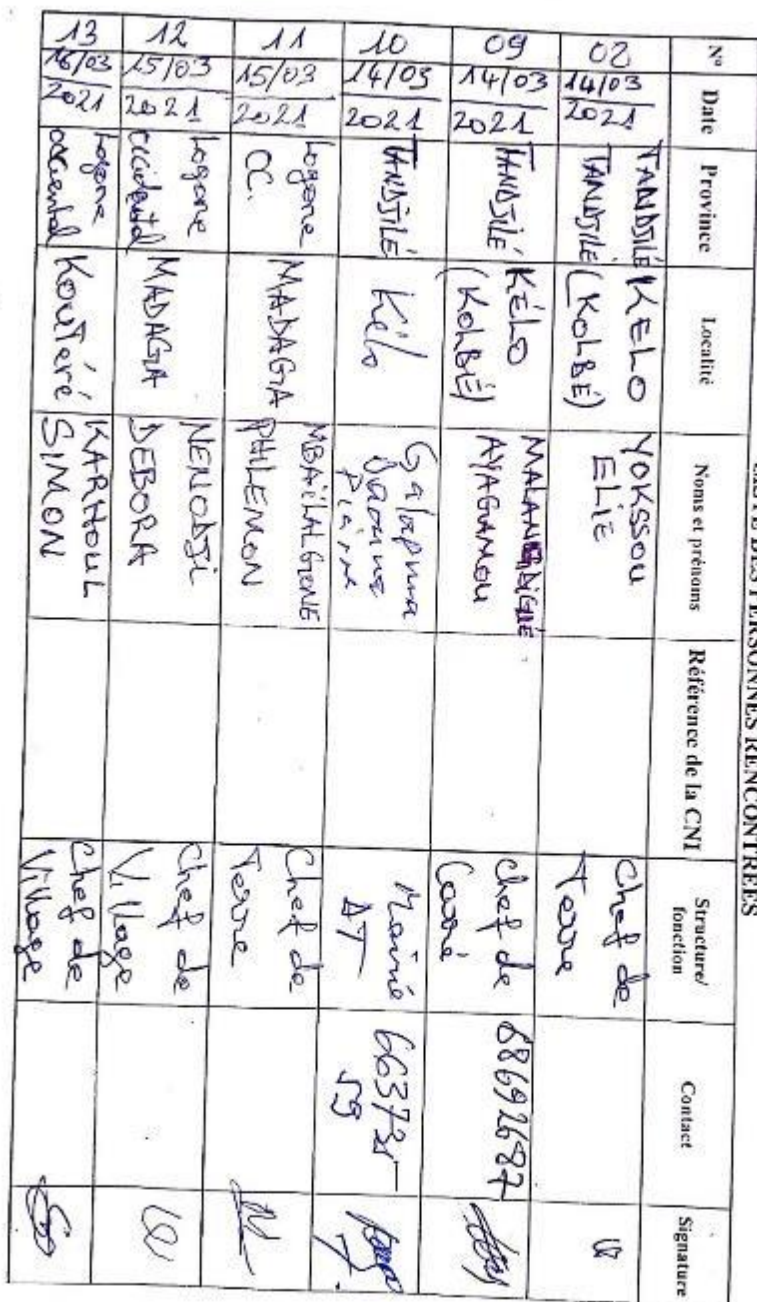 LISTE DES PERSONNES RENCONTREES
N° Date Province Localité Noms et prénoms Référence de la CNI Structure/ fonction Contact Signature
02 14/03 2021 TANDJILÉ TANDJILÉ KELO (KOLBÉ) YOKSSOU ELIE Chef de Terre
09 14/03 2021 TANDJILÉ KÉLO (KOLBIÉ) AYAGAMOU Chef de Carré 68692687
10 14/03 2021 TANDJILÉ Kélo Pierre Mairie AT
11 15/03 2021 Logone OC. MADAGA MBAÏLALGONE PHILEMON Chef de Terre
12 15/03 2021 Logone Occidental MADAGA NENODJI DEBORA Chef de Village
13 16/03 2021 Logone occidental Kouteré KARHOUL SIMON Chef de Village